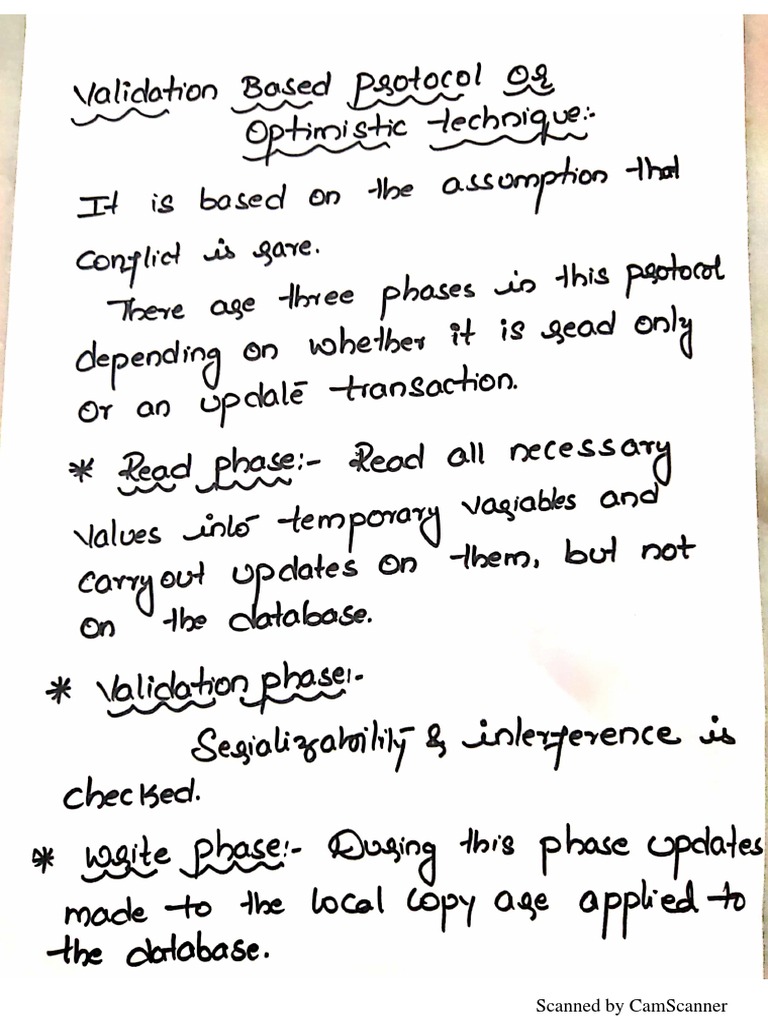 Validation Based protocol or
Optimistic technique:-
It is based on the assumption that
conflict is rare.
There are three phases in this protocol
depending on whether it is read only
or an update transaction.
* Read phase:- Read all necessary
values into temporary variables and
carryout updates on them, but not
on the database.
* Validation phase:-
Serializability & interference is
checked.
* Write phase:- During this phase updates
made to the local copy are applied to
the database.
Scanned by CamScanner